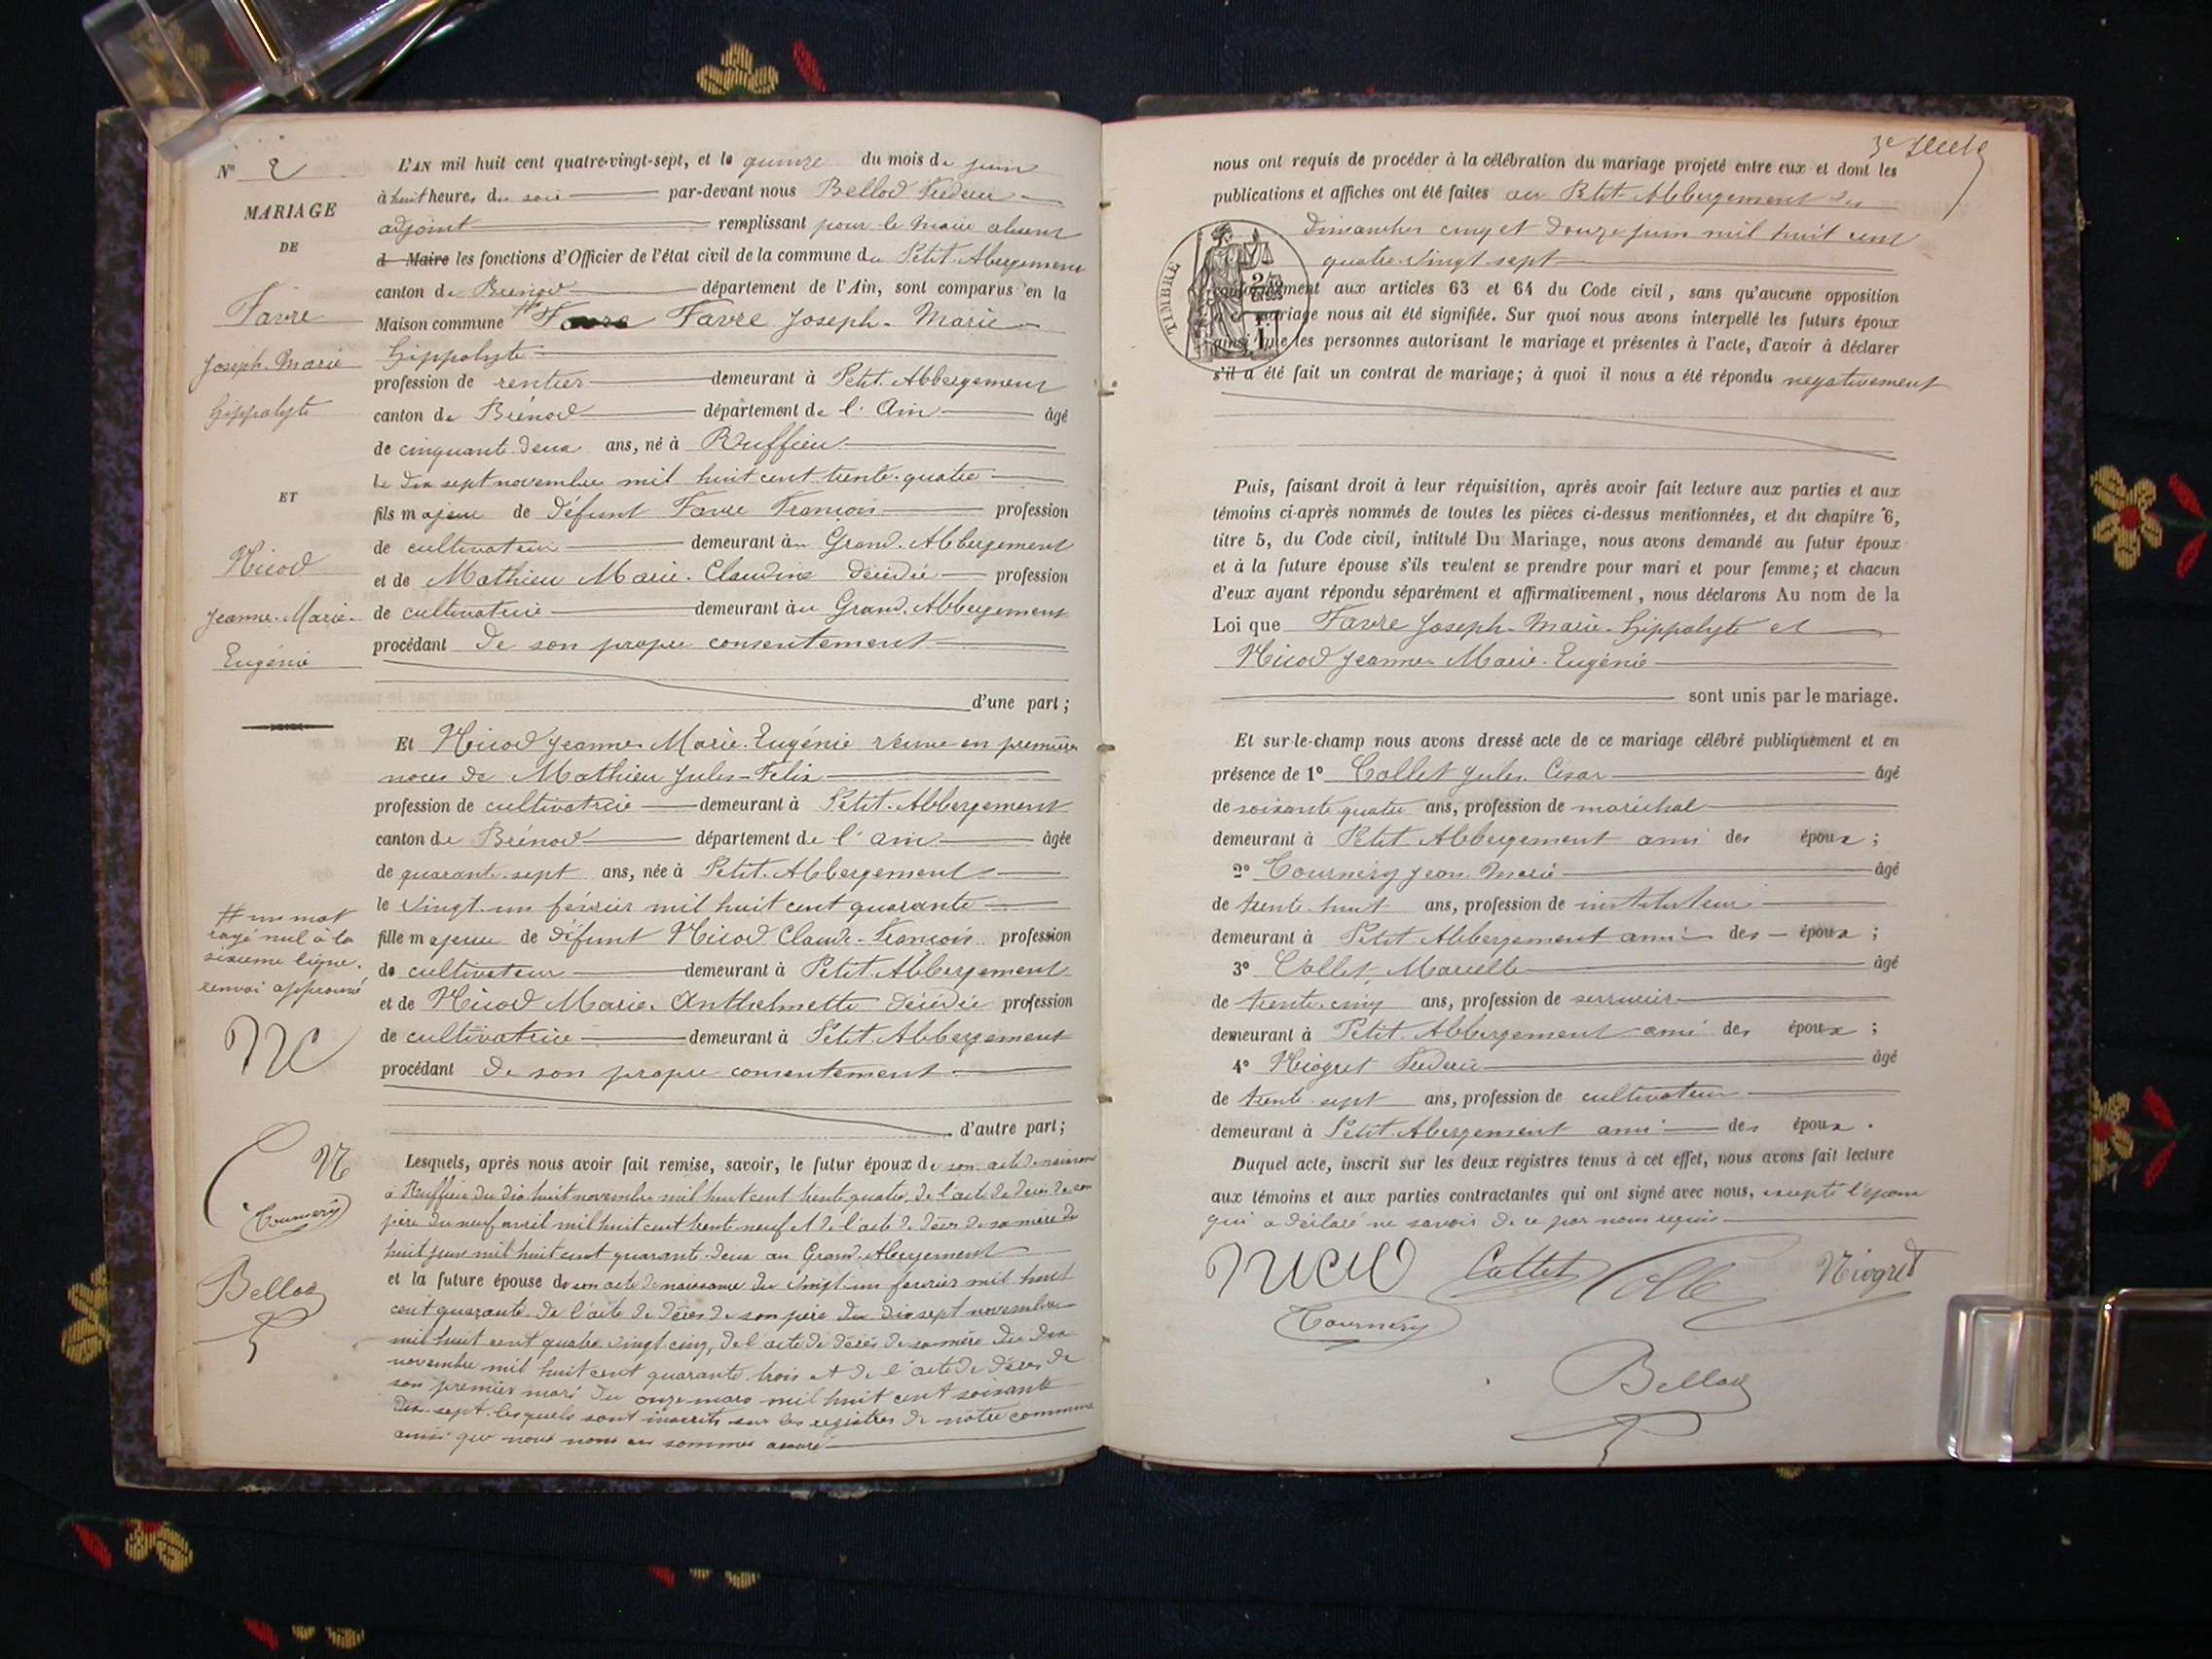 N° 2
MARIAGE
DE
Favre
Joseph-Marie
Hippolyte
ET
Nicod
Jeanne-Marie-
Eugénie
# un mot
rayé nul à la
sixième ligne.
renvoi approuvé
N
Tournery
Bellod
L'AN mil huit cent quatre-vingt-sept, et le quinze du mois de juin
à huit heures du soir par-devant nous Bellod
adjoint remplissant pour le Maire absent
d Maire les fonctions d'Officier de l'état civil de la commune du Petit-Abergement
canton de Brénod département de l'Ain, sont comparus en la
Maison commune # Favre Joseph-Marie
Hippolyte
profession de rentier demeurant à Petit-Abbergement
canton de Brénod département de l'Ain âgé
de cinquante deux ans, né à Ruffieu
le dix sept novembre mil huit cent trente-quatre
fils majeur de défunt Favre François profession
de cultivateur demeurant au Grand-Abbergement
et de Mathieu Marie-Claudine décédée profession
de cultivatrice demeurant au Grand-Abbergement
procédant de son propre consentement
d'une part;
Et Nicod Jeanne-Marie-Eugénie veuve en premières
noces de Mathieu Jules-Félix
profession de cultivatrice demeurant à Petit-Abbergement
canton de Brénod département de l'Ain âgée
de quarante-sept ans, née à Petit-Abbergement
le vingt-un février mil huit cent quarante
fille majeure de défunt Nicod Claude-François profession
de cultivateur demeurant à Petit-Abbergement
et de Nicod Marie-Anthelmette décédée profession
de cultivatrice demeurant à Petit-Abbergement
procédant de son propre consentement
d'autre part;
Lesquels, après nous avoir fait remise, savoir, le futur époux de son acte de naissance
à Ruffieu du dix huit novembre mil huit cent trente quatre, de l'acte de décès de son
père du neuf avril mil huit cent trente neuf et de l'acte de décès de sa mère du
huit juin mil huit cent quarante-deux au Grand-Abergement
et la future épouse de son acte de naissance du vingt-un février mil huit
cent quarante de l'acte de décès de son père du dix sept novembre
mil huit cent quatre vingt cinq, de l'acte de décès de sa mère du dix
novembre mil huit cent quarante-trois et de l'acte de décès de
son premier mari du onze mars mil huit cent soixante
dix-sept lesquels sont inscrits sur les registres de notre commune
ainsi que nous nous en sommes assuré
nous ont requis de procéder à la célébration du mariage projeté entre eux et dont les
publications et affiches ont été faites au Petit-Abbergement les
dimanches cinq et douze juin mil huit cent
quatre-vingt-sept
TIMBRE
conformément aux articles 63 et 64 du Code civil, sans qu'aucune opposition
à ce mariage nous ait été signifiée. Sur quoi nous avons interpellé les futurs époux
ainsi que les personnes autorisant le mariage et présentes à l'acte, d'avoir à déclarer
s'il a été fait un contrat de mariage; à quoi il nous a été répondu négativement
Puis, faisant droit à leur réquisition, après avoir fait lecture aux parties et aux
témoins ci-après nommés de toutes les pièces ci-dessus mentionnées, et du chapitre 6,
titre 5, du Code civil, intitulé Du Mariage, nous avons demandé au futur époux
et à la future épouse s'ils veulent se prendre pour mari et pour femme; et chacun
d'eux ayant répondu séparément et affirmativement, nous déclarons Au nom de la
Loi que Favre Joseph-Marie-Hippolyte et
Nicod Jeanne-Marie-Eugénie
sont unis par le mariage.
Et sur-le-champ nous avons dressé acte de ce mariage célébré publiquement et en
présence de 1° Collet Jules César âgé
de soixante quatre ans, profession de maréchal
demeurant à Petit-Abbergement ami des époux;
2° Tournery Jean-Marie âgé
de trente-huit ans, profession de instituteur
demeurant à Petit-Abbergement ami des époux;
3° Collet Marcelle âgé
de trente-cinq ans, profession de serrurier
demeurant à Petit-Abbergement ami des époux;
4° Niogret âgé
de trente-sept ans, profession de cultivateur
demeurant à Petit-Abergement ami des époux.
Duquel acte, inscrit sur les deux registres tenus à cet effet, nous avons fait lecture
aux témoins et aux parties contractantes qui ont signé avec nous, excepté l'époux
qui a déclaré ne savoir de ce par nous requis
Nicod Collet Niogret
Tournery
Bellod